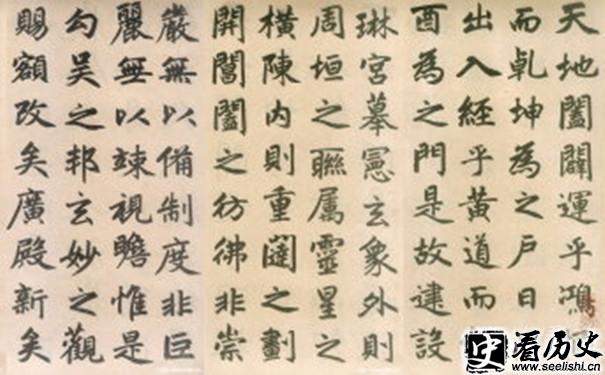 天地闔闢運乎鴻
而乹坤為之戶日
出入經乎黃道而
酉為之門是故建設
琳宮摹憲玄象外則
周垣之聯属靈星之
橫陳内則重闥之劃
開閶闔之彷彿非崇
嚴無以備制度非巨
麗無以竦視瞻惟是
勾吳之邦玄妙之觀
賜額改矣廣殿新矣
史 看历史
www.seelishi.cn